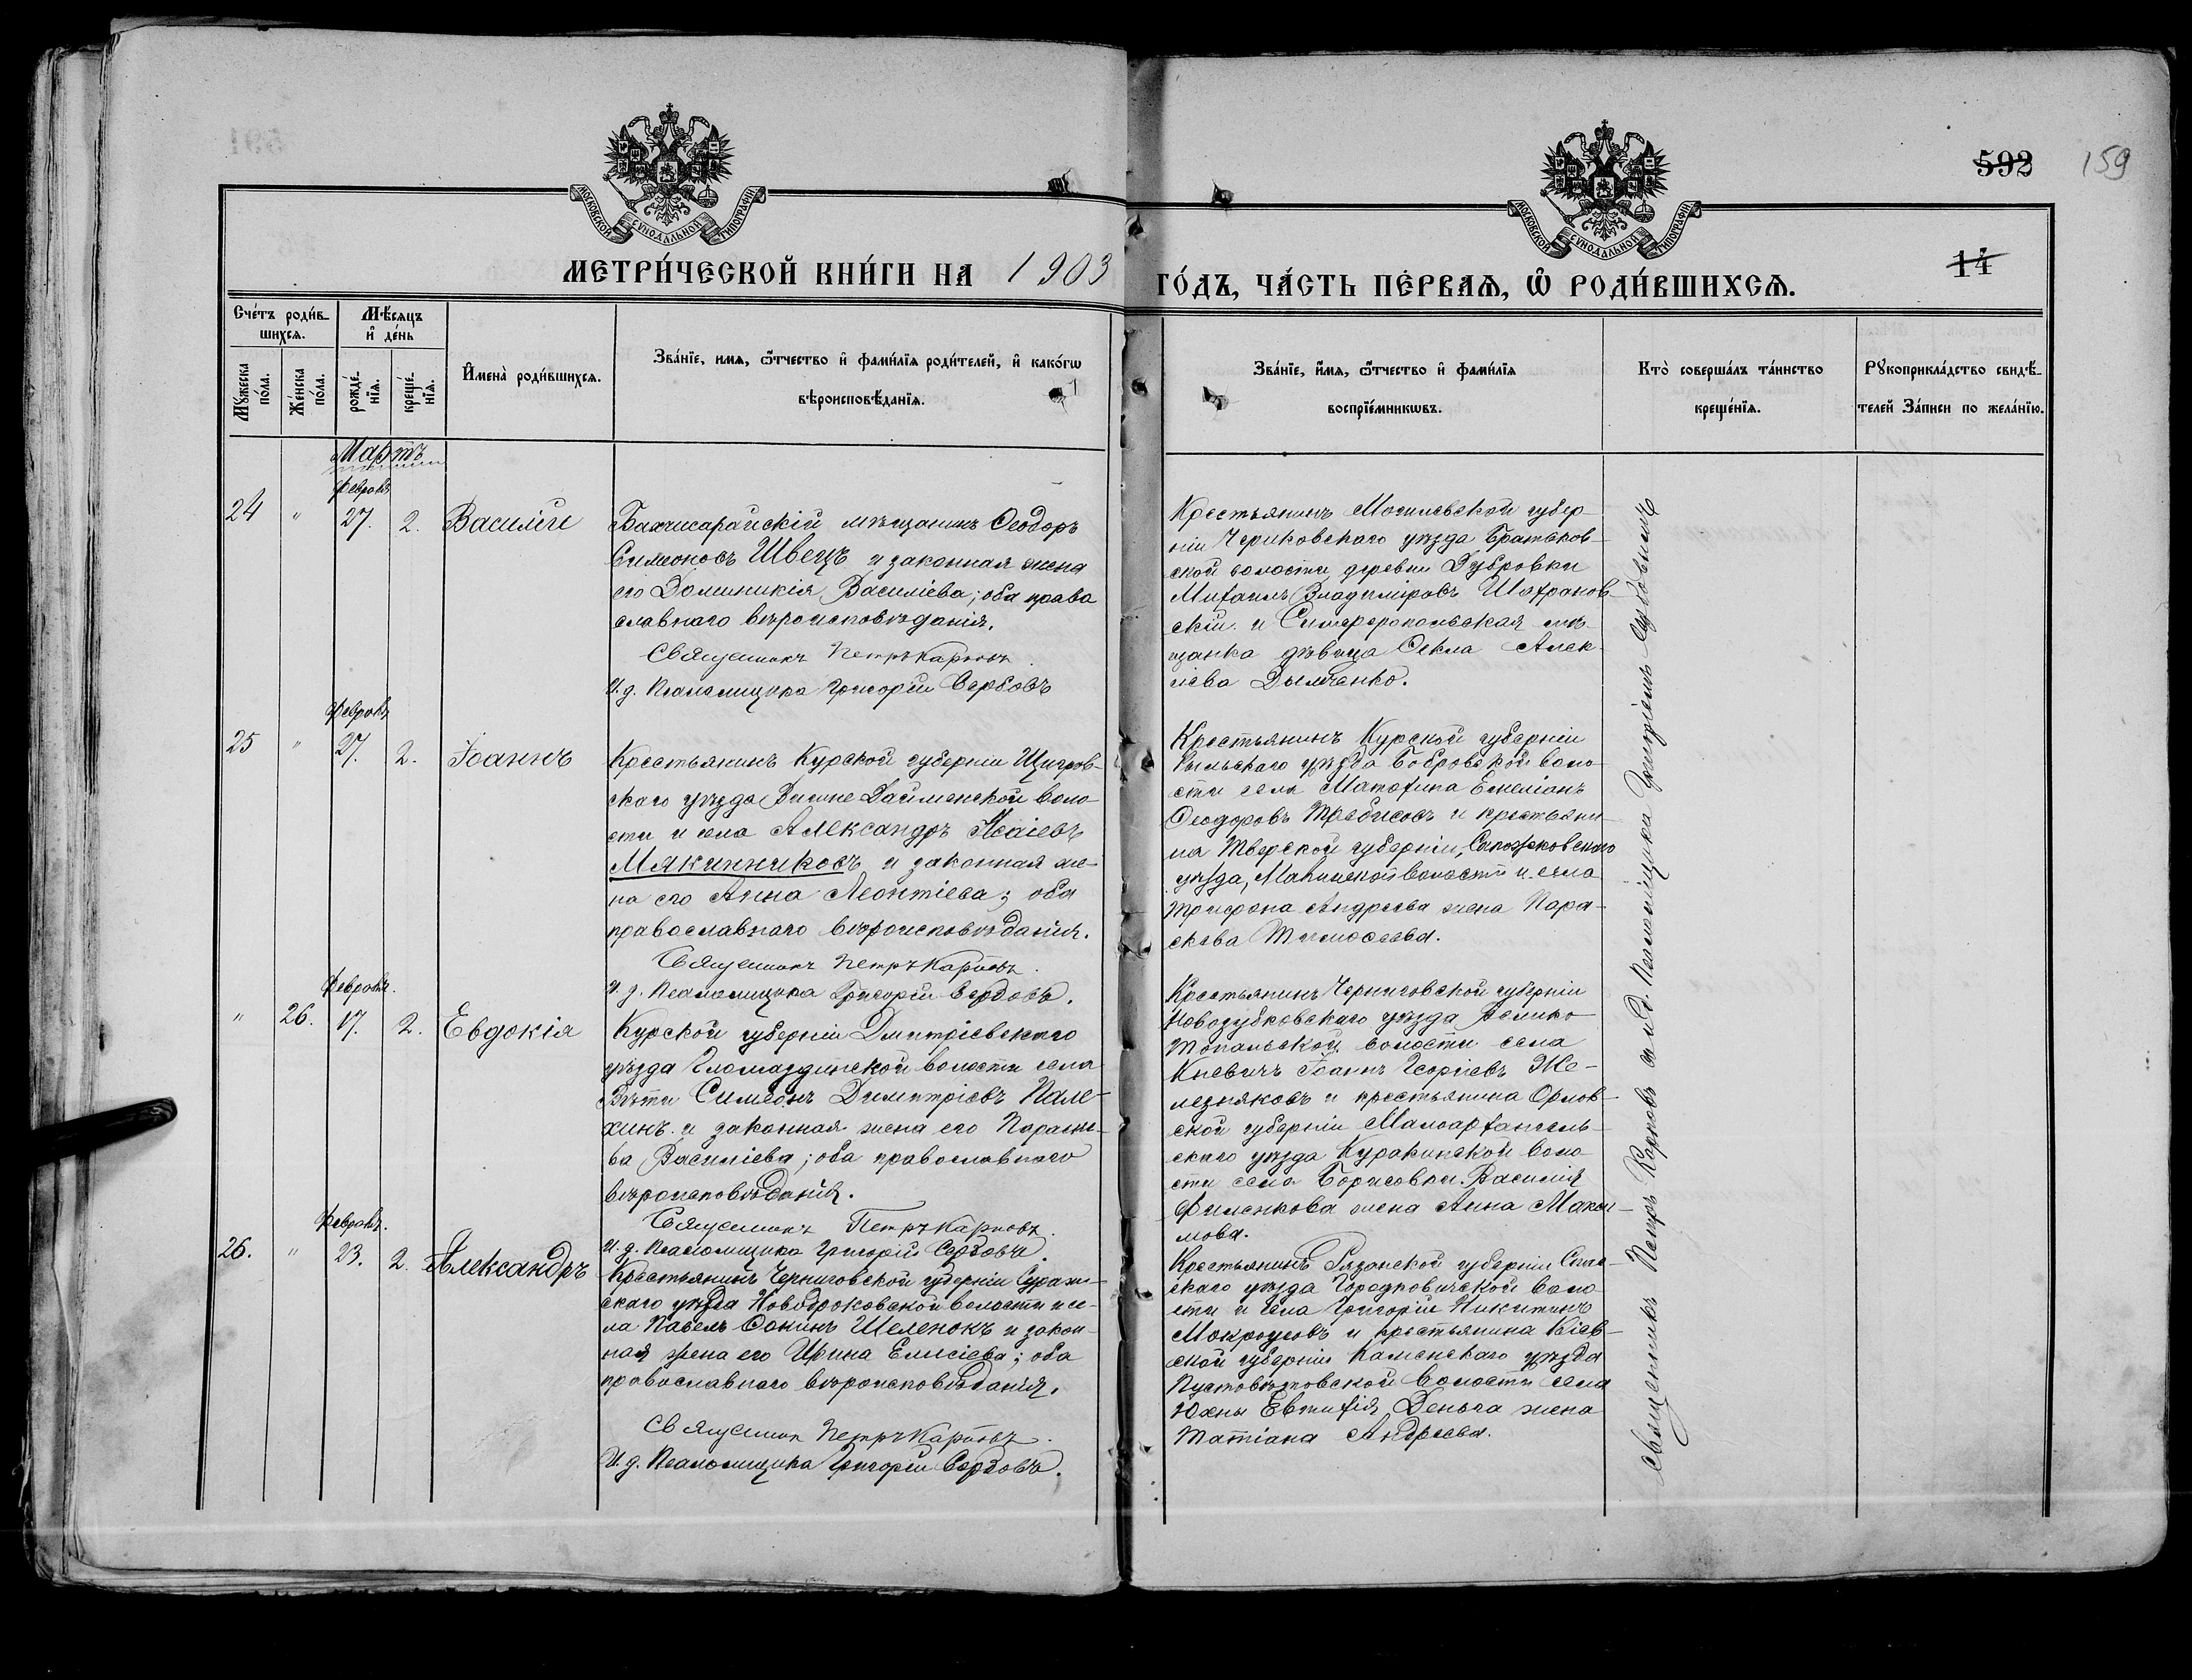 592
159
14
МОСКОВСКОЙ СѴНОДАЛЬНОЙ ТИПОГРАФІИ
МОСКОВСКОЙ СѴНОДАЛЬНОЙ ТИПОГРАФІИ
МЕТРИ́ЧЕСКОЙ КНИ́ГИ НА 1903
ГО́ДЪ, ЧА́СТЬ ПЕ́РВАѦ, Ѽ РОДИ́ВШИХСѦ.
Сче́тъ роди́в-
шихсѧ.
Мѣ́сѧцъ
и҆ де́нь
Мꙋ́жеска по́ла.
Же́нска по́ла.
рожде́-нїѧ.
креще́-нїѧ.
И҆мена̀ роди́вшихсѧ.
Зва́нїе, имѧ, ѻ҆́тчество и҆ фами́лїѧ роди́телей, и҆ како́гѡ
вѣроисповѣ́данїѧ.
Зва́нїе, и҆́мѧ, ѻ҆́тчество и҆ фами́лїѧ
воспрїе́мникѡвъ.
Кто̀ соверша́лъ та́инство
креще́нїѧ.
Рꙋкоприкла́дство свидѣ́-
телей За́писи по жела́нїю.
Мартъ
Февраля
24 " 27. 2. Василій
Бахчисарайскій мѣщанинъ Ѳеодоръ
Симеоновъ Швецъ и законная жена
его Домникія Василіева; оба право
славнаго вѣроисповѣданія.
Священникъ Петръ Карповъ.
И. д. Псаломщика Григорій Сербовъ
Крестьянинъ Могилевской губер
ніи Чериковскаго уѣзда Братьков-
ской волости деревни Дубровки
Михаилъ Владиміровъ Шафранов-
скій и Симферопольская мѣ-
щанка дѣвица Ѳекла Алек-
сіева Дымченко.
Февраля
25 " 27. 2. Іоаннъ
Крестьянинъ Курской губерніи Щигров-
скаго уѣзда Вышне Дайменской воло
сти и села Александръ Исаіевъ
Мякинниковъ и законная же-
на его Анна Леонтіева; оба
православнаго вѣроисповѣданія.
Священникъ Петръ Карповъ.
И. д. Псаломщика Григорій Сербовъ.
Крестьянинъ Курской губерніи
Рыльскаго уѣзда Бобровской воло
сти села Емеліанъ
Ѳеодоровъ и крестьяни-
на Тверской губерніи,
уѣзда, волости и села
Трифона Андреева жена Пара-
скева Тимоѳеева.
Февраля.
" 26. 17. 2. Евдокія
Курской губерніи Дмитріевскаго
уѣзда волости села
Вѣти Симеонъ Димитріевъ Пале-
хинъ и законная жена его Параске-
ва Василіева; оба православнаго
вѣроисповѣданія.
Священникъ Петръ Карповъ.
И. д. Псаломщика Григорій Сербовъ.
Крестьянинъ Черниговской губерніи
Новозубковскаго уѣзда Велико
Топальской волости села
Іоаннъ Георгіевъ Же-
лезняковъ и крестьянина Орлов-
ской губерніи Малоархангель-
скаго уѣзда Куракинской воло
сти села Борисовки Василія
Филенкова жена Анна Макси-
мова.
Февраля.
26. " 23. 2. Александръ
Крестьянинъ Черниговской губерніи Сураж-
скаго уѣзда Новодроковской волости и се-
ла Павелъ Ѳокинъ Шеленокъ и закон-
ная жена его Ирина Елисіева; оба
православнаго вѣроисповѣданія.
Священник Петръ Карповъ.
И. д. Псаломщика Григорій Сербовъ.
Крестьянинъ Рязанской губерніи Спас-
скаго уѣзда Городковичской воло
сти и села Григорій Никитинъ
Мокроусовъ и крестьянина Кіев-
ской губерніи Каменскаго уѣзда
Пустовѣтовской волости села
Юхны Евтихія Деньга жена
Татіана Андреева.
Священникъ Петръ Карповъ съ и.д. Псаломщика Григоріемъ Сербовымъ